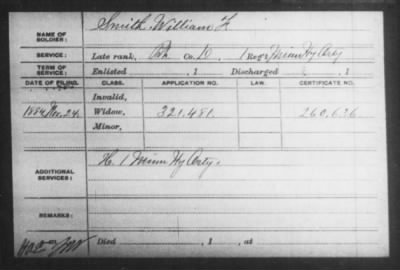 NAME OF SOLDIER: Smith, William F.
SERVICE: Late rank, Co. D, 1 Reg't Minn Hy Arty
TERM OF SERVICE: Enlisted , 1 Discharged , 1
DATE OF FILING. CLASS. APPLICATION NO. LAW. CERTIFICATE NO.
Invalid,
1884 Nov. 24. Widow, 321.481. 260,636
Minor,
ADDITIONAL SERVICES: H. 1 Minn Hy Arty.
REMARKS:
Died , 1 , at